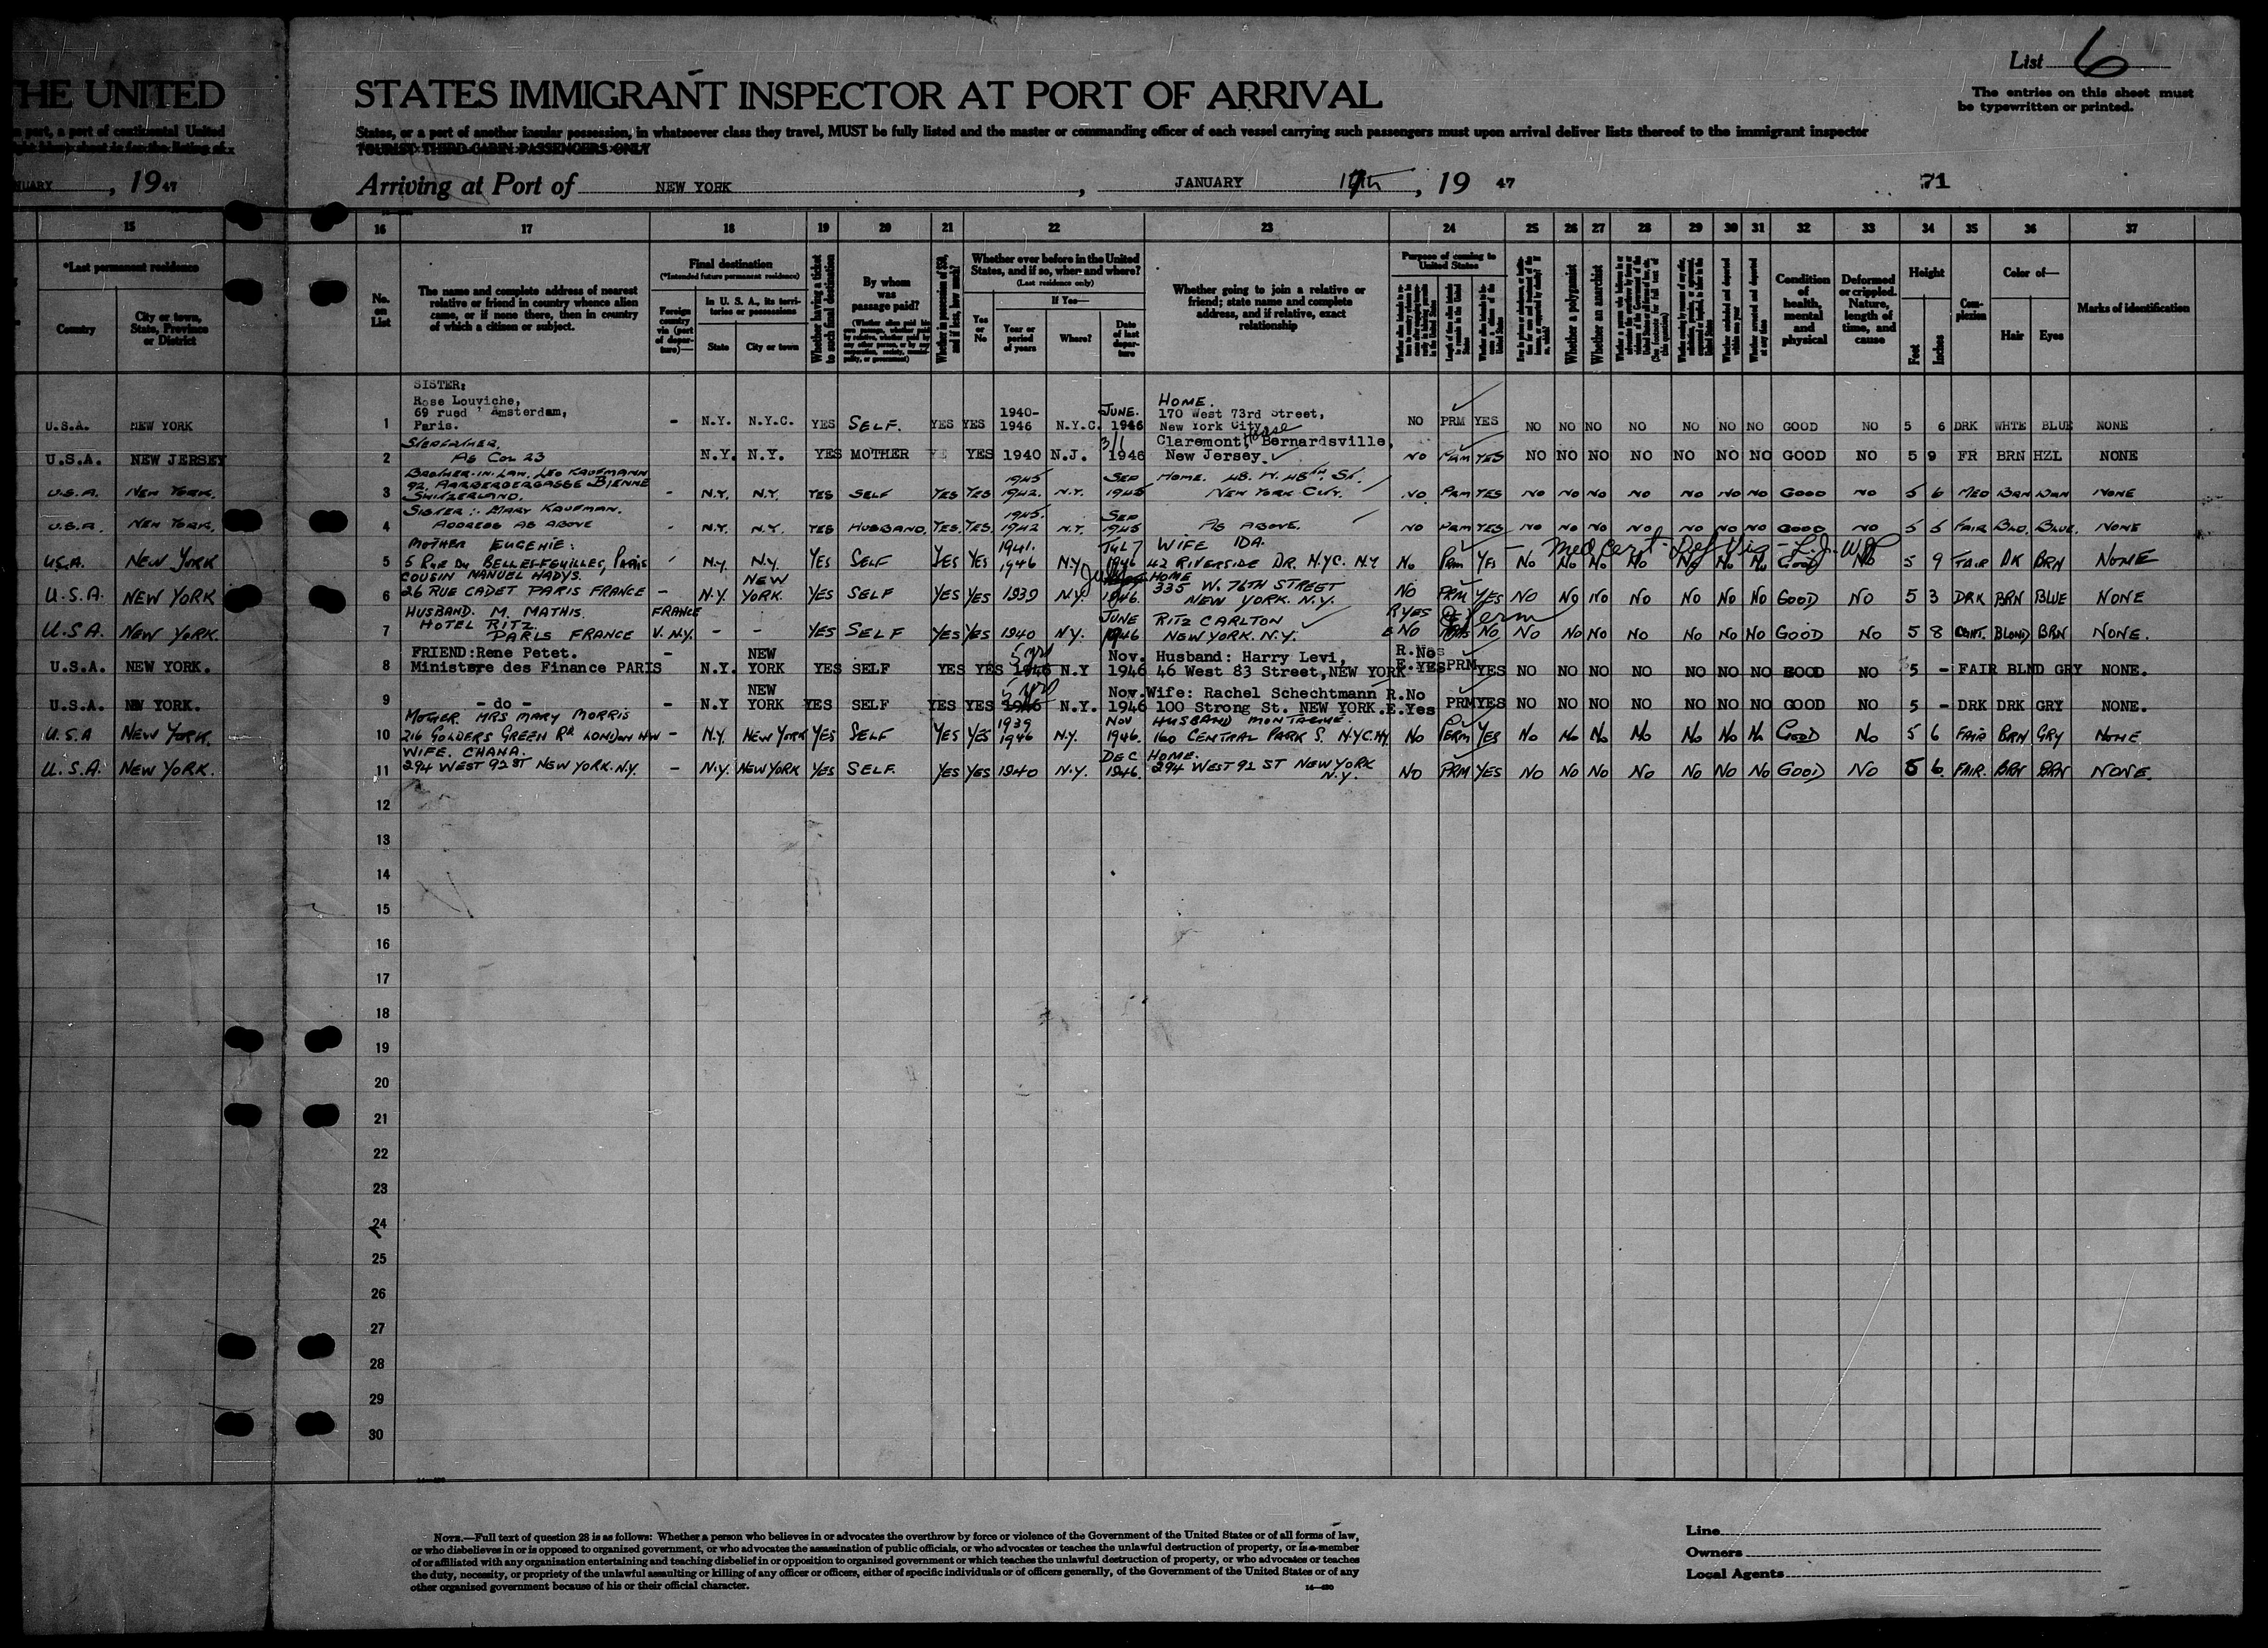 List 6
The entries on this sheet must
be typewritten or printed.
HE UNITED
STATES IMMIGRANT INSPECTOR AT PORT OF ARRIVAL
n port, a port of continental United
States, or a port of another insular possession, in whatsoever class they travel, MUST be fully listed and the master or commanding officer of each vessel carrying such passengers must upon arrival deliver lists thereof to the immigrant inspector
TOURIST THIRD-CABIN PASSENGERS ONLY
NUARY, 1947
Arriving at Port of NEW YORK, JANUARY 17th, 19 47
71
15 16 17 18 19 20 21 22 23 24 25 26 27 28 29 30 31 32 33 34 35 36 37
*Last permanent residence
Country
City or town, State, Province or District
No. on List
The name and complete address of nearest relative or friend in country whence alien came, or if none there, then in country of which a citizen or subject.
Final destination
(*Intended future permanent residence)
Foreign country via (port of departure)—
In U. S. A., its territories or possessions
State
City or town
Whether having a ticket to such final destination
By whom was passage paid?
Whether in possession of $50, and if less, how much?
Whether ever before in the United States, and if so, when and where?
(Last residence only)
Yes or No
If Yes—
Year or period of years
Where?
Date of last departure
Whether going to join a relative or friend; state name and complete address, and if relative, exact relationship
Purpose of coming to United States
Whether a polygamist
Whether an anarchist
Condition of health, mental and physical
Deformed or crippled. Nature, length of time, and cause
Height
Feet
Inches
Complexion
Color of—
Hair
Eyes
Marks of identification
SISTER:
Rose Louviche,
69 rued' Amsterdam,
Paris.
U.S.A. NEW YORK 1 - N.Y. N.Y.C. YES SELF. YES YES 1940-1946 N.Y.C. JUNE. 1946 HOME. 170 West 73rd Street, New York City NO PRM YES NO NO NO NO NO NO NO GOOD NO 5 6 DRK WHTE BLUE NONE
STEPFATHER.
AS COL 23
U.S.A. NEW JERSEY 2 N.Y. N.Y. YES MOTHER YES 1940 N.J. 3/1 1946 Claremont, House Bernardsville, New Jersey. NO PRM YES NO NO NO NO NO NO NO GOOD NO 5 9 FR BRN HZL NONE
BROTHER-IN-LAW, LEO KAUFMANN
92. AARBERGERGASSE BIENNE
SWITZERLAND.
U.S.A. NEW YORK. 3 - N.Y. N.Y. YES SELF YES YES 1945 1942. N.Y. SEP 1945 HOME. 48. W. 48th. St. NEW YORK CITY. NO PRM YES NO NO NO NO NO NO NO GOOD NO 5 6 MED BRN BRN NONE
SISTER:. MARY KAUFMAN.
ADDRESS AS ABOVE
U.S.A. NEW YORK. 4 - N.Y. N.Y. YES HUSBAND. YES. YES. 1945. 1942 N.Y. SEP 1945 AS ABOVE. NO PRM YES NO NO NO NO NO NO NO GOOD NO 5 5 FAIR BLD. BLUE. NONE
MOTHER EUGENIE:
5 RUE DU BELLES-FEUILLES, PARIS
U.S.A. NEW YORK 5 N.Y. N.Y. YES SELF YES YES 1941. 1946 N.Y. JUL 7 1946 WIFE IDA. 42 RIVERSIDE DR. N.Y.C. N.Y NO PRM YES NO NO NO NO NO NO NO GOOD NO 5 9 FAIR DK BRN NONE
Med Cert - Def Vis -
COUSIN MANUEL HADYS.
26 RUE CADET PARIS FRANCE
U.S.A. NEW YORK 6 - N.Y. NEW YORK YES SELF YES YES 1939 N.Y. July 1946. HOME 335 W. 76TH STREET NEW YORK. N.Y. NO PRM YES NO NO NO NO NO NO NO GOOD NO 5 3 DRK BRN BLUE NONE
HUSBAND. M. MATHIS.
HOTEL RITZ.
PARIS FRANCE
U.S.A. NEW YORK. 7 FRANCE V. N.Y. - - YES SELF YES YES 1940 N.Y. JUNE 1946 RITZ CARLTON NEW YORK. N.Y. R YES E NO Perm NO NO NO NO NO NO NO NO GOOD NO 5 8 BLOND BRN NONE.
FRIEND:Rene Petet.
Ministere des Finance PARIS
U.S.A. NEW YORK. 8 - N.Y. NEW YORK YES SELF YES YES 5 yrs 1946 N.Y Nov. 1946 Husband: Harry Levi, 46 West 83 Street, NEW YORK R.No E.YES PRM YES NO NO NO NO NO NO NO GOOD NO 5 - FAIR BLND GRY NONE.
- do -
U.S.A. NW YORK. 9 - N.Y NEW YORK YES SELF YES YES 5 yrs 1946 N.Y. Nov. 1946 Wife: Rachel Schechtmann 100 Strong St. NEW YORK. R.No E.Yes PRM YES NO NO NO NO NO NO NO GOOD NO 5 - DRK DRK GRY NONE.
MOTHER MRS MARY MORRIS
216 GOLDERS GREEN Rd LONDON NW
U.S.A NEW YORK. 10 - N.Y. NEW YORK YES SELF YES YES 1939 1946 N.Y. NOV 1946. HUSBAND MONTAGUE. 160 CENTRAL PARK S. N.Y.C. NY NO PERM YES NO NO NO NO NO NO NO GOOD NO 5 6 FAIR BRN GRY NONE
WIFE. CHANA.
294 WEST 92 ST NEW YORK. N.Y.
U.S.A. NEW YORK. 11 - N.Y. NEW YORK YES SELF. YES YES 1940 N.Y. DEC 1946. HOME. 294 WEST 92 ST NEW YORK N.Y. NO PRM YES NO NO NO NO NO NO NO GOOD NO 5 6 FAIR. BRN BRN NONE.
12
13
14
15
16
17
18
19
20
21
22
23
24
25
26
27
28
29
30
NOTE.—Full text of question 28 is as follows: Whether a person who believes in or advocates the overthrow by force or violence of the Government of the United States or of all forms of law,
or who disbelieves in or is opposed to organized government, or who advocates the assassination of public officials, or who advocates or teaches the unlawful destruction of property, or is a member
of or affiliated with any organization entertaining and teaching disbelief in or opposition to organized government or which teaches the unlawful destruction of property, or who advocates or teaches
the duty, necessity, or propriety of the unlawful assaulting or killing of any officer or officers, either of specific individuals or of officers generally, of the Government of the United States or of any
other organized government because of his or their official character.
14—430
Line
Owners
Local Agents